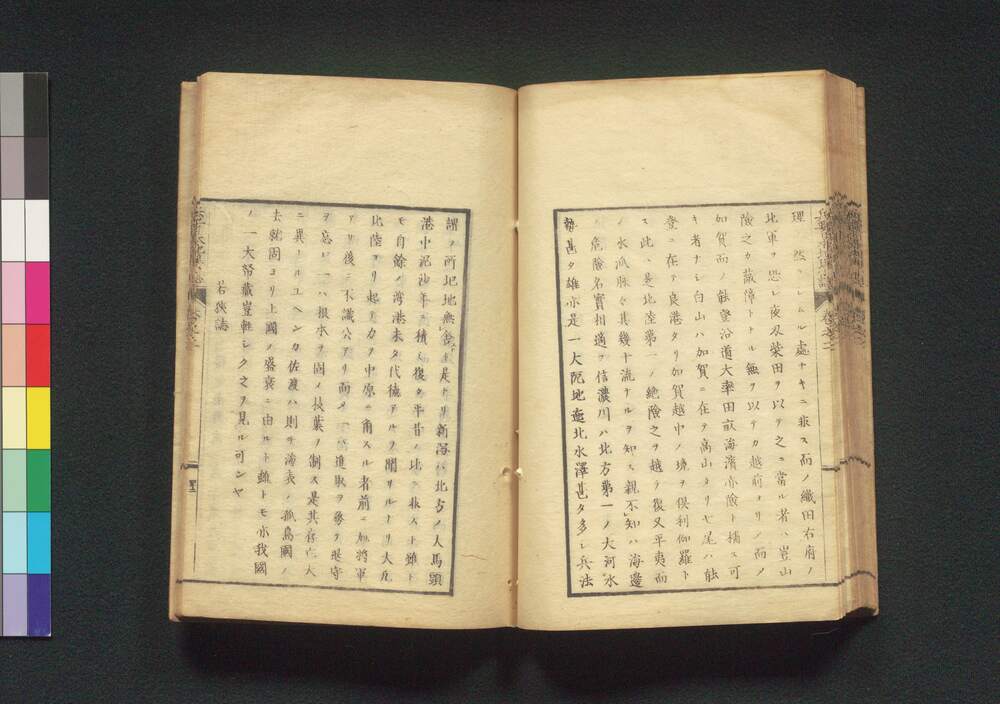 理 然ラシムル處ナキニ非ス而ノ織田右府ノ
北軍ヲ恐レ夜叉柴田ヲ以テ之ニ當ル者ハ豈山
險之カ蔽障トナル無ヲ以テカ越前ヨリノ而メ
加賀而ノ能登沿道大率田畝海濱亦險ト稱ス可
キ者ナシ白山ハ加賀ニ在テ高山タリ七尾ハ能
登ニ在テ良港タリ加賀越中ノ境ヲ倶利伽羅ト
ス此 是北陸第一ノ絶險之ヲ越テ復又平夷而
ノ水派脉々其幾十流ナルヲ知ス親不知ハ海邊
ノ危險名實相適フ信濃川ハ北方第一ノ大河水
勢甚タ雄亦是一大阨地 北水澤甚タ多シ兵法
謂フ所圮地無舍 是ナリ新潟ハ北方ノ人馬頭
港中泥沙年ニ積ミ復タ平昔ノ比ニ非スト雖ト
モ自餘ノ湾港未タ代徳アルヲ聞サルナリ大凡
北陸ヨリ起テカヲ中原ニ角スル者前ニ 將軍
アリ後ニ不識公アリ而メ一ハ進取ヲ務テ退守
ヲ忘レ一ハ根本ヲ固メ枝葉ヲ制ス是其存亡大
ニ異ナルユヘンカ佐渡ハ則チ海表ノ孤島國ノ
去就固ヨリ上國ノ盛衰ニ由ルト雖トモ亦我國
ノ一大帑藏豈軽シク之ヲ見ル可ンヤ
若狹誌